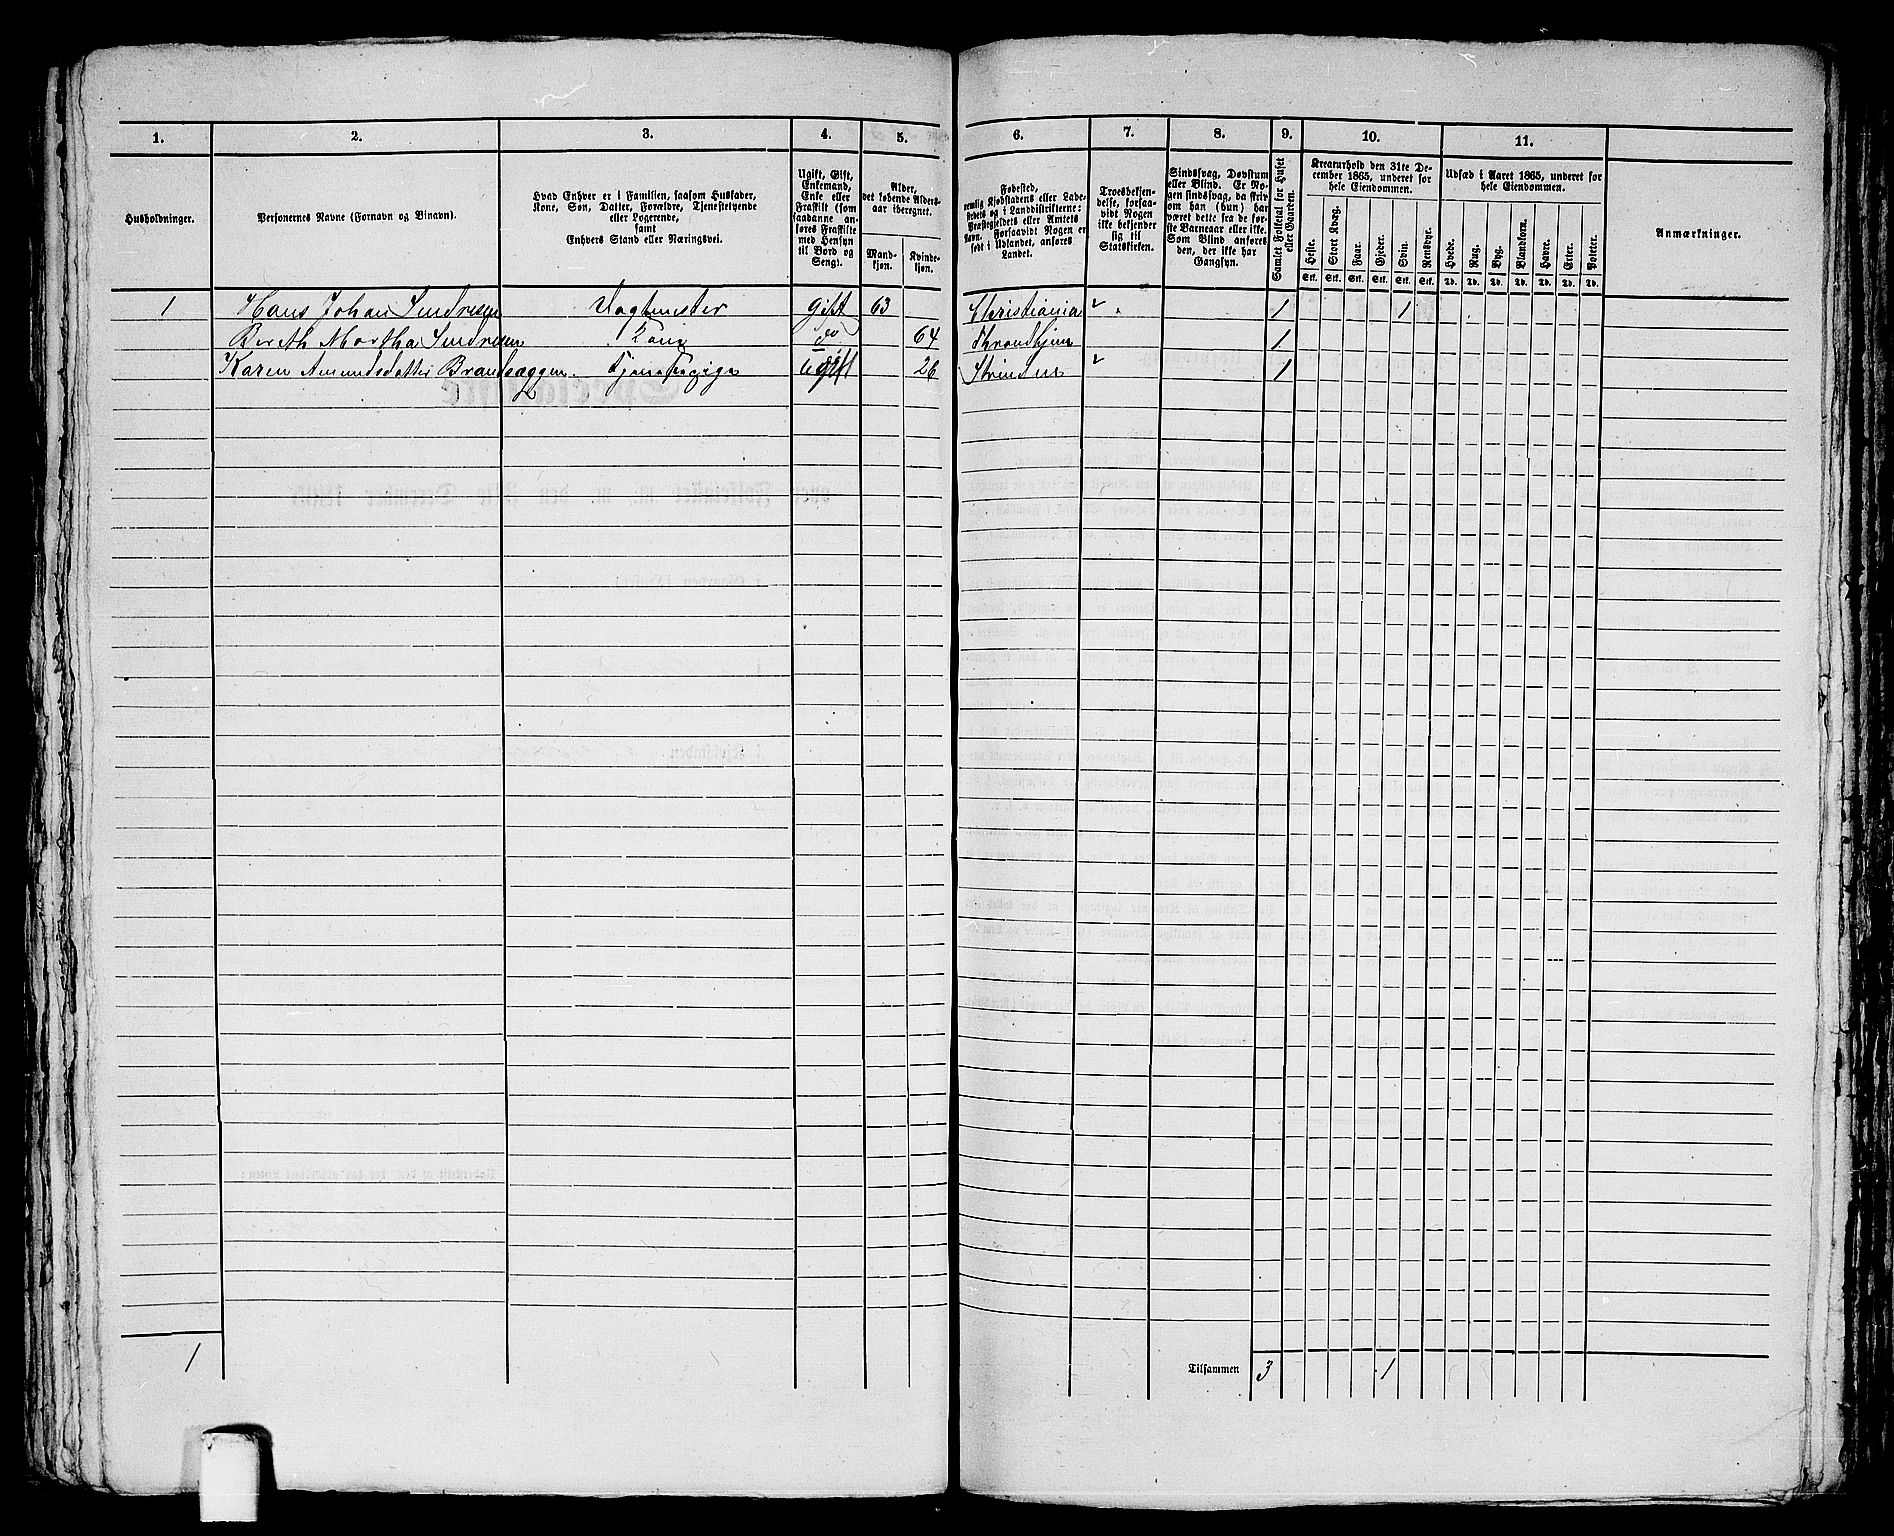 1. 2. 3. 4. 5. 6. 7. 8. 9. 10. 11.
Husholdninger.
Personernes Navne (Fornavn og Binavn).
Hvad Enhver er i Familien, saasom Husfader,
Kone, Søn, Datter, Forældre, Tjenestetyende
eller Logerende,
samt
Enhvers Stand eller Næringsvei.
Ugift, Gift,
Enkemand,
Enke eller
Fraskilt (som
saadanne an-
føres Fraskilte
med Hensyn
til Bord og
Seng).
Alder,
det løbende Alders-
aar iberegnet.
Mand-
kjøn.
Kvinde-
kjøn.
Fødested,
nemlig Kjøbstadens eller Lade-
stedets og i Landdistrikterne:
Præstegjeldets eller Amtets
Navn. Forsaavidt Nogen er
født i Udlandet, anføres
Landet.
Troesbekjen-
delse, forsaa-
vidt Nogen
ikke bekjender
sig til
Statskirken.
Sindssvag, Døvstum
eller Blind. Er No-
gen sindssvag, da skriv
om han (hun) har
været dette fra de før-
ste Barneaar eller ikke.
Som Blind anføres
den, der ikke har
Gangsyn.
Samlet Folketal for Huset
eller Gaarden.
Kreaturhold den 31te De-
cember 1865, underet for
hele Eiendommen.
Heste. Stort Kvæg. Faar. Gjeder. Svin. Rensdyr.
Stk. Stk. Stk. Stk. Stk. Stk.
Udsæd i Aaret 1865, underet for
hele Eiendommen.
Hvede. Rug. Byg. Blandkorn. Havre. Erter. Poteter.
Td. Td. Td. Td. Td. Td. Td.
Anmærkninger.
1 Hans Johan Gift 63 Christiania 1 1
Bereth Martha Kone do 64 Throndhjem 1
Karen Amundsdatter Ugift 26 Strinden 1
1 Tilsammen 3 1